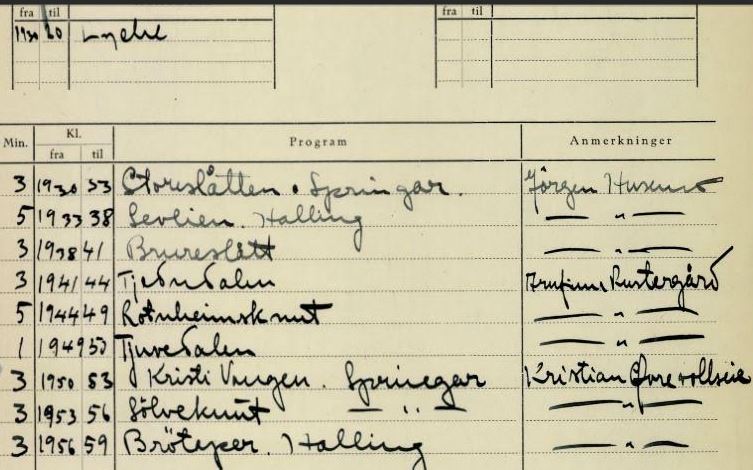 fra til fra til
1930 50
Min. Kl. Program Anmerkninger
fra til
3 1930 33 Storeslåtten. Springar. Jörgen
5 1933 38 Sevlien. Halling — " —
3 1938 41 Brureslått — " —
3 1941 44 Rustergård
5 1944 49 Rotnheimsknut — " —
1 1949 50 Tjuvedalen — " —
3 1950 53 Kristi Vangen. Springar Kristian
3 1953 56 Sölveknut — " — — " —
3 1956 59 Halling — " —